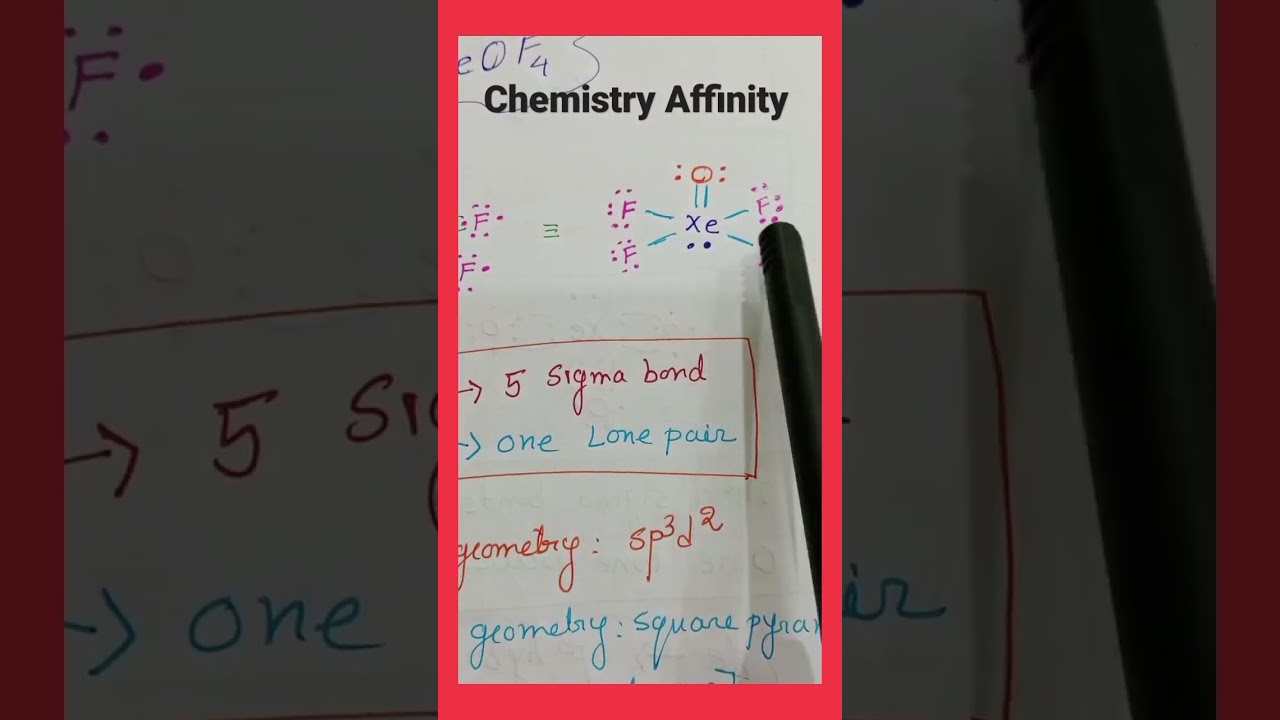 eOF4
Chemistry Affinity
:O:
:F F:
Xe
:F
:F•
F•
≡
→ 5 Sigma bond
→ one Lone pair
geometry: sp³d²
geometry: square pyram
F•
5 Sig
→ one
ir